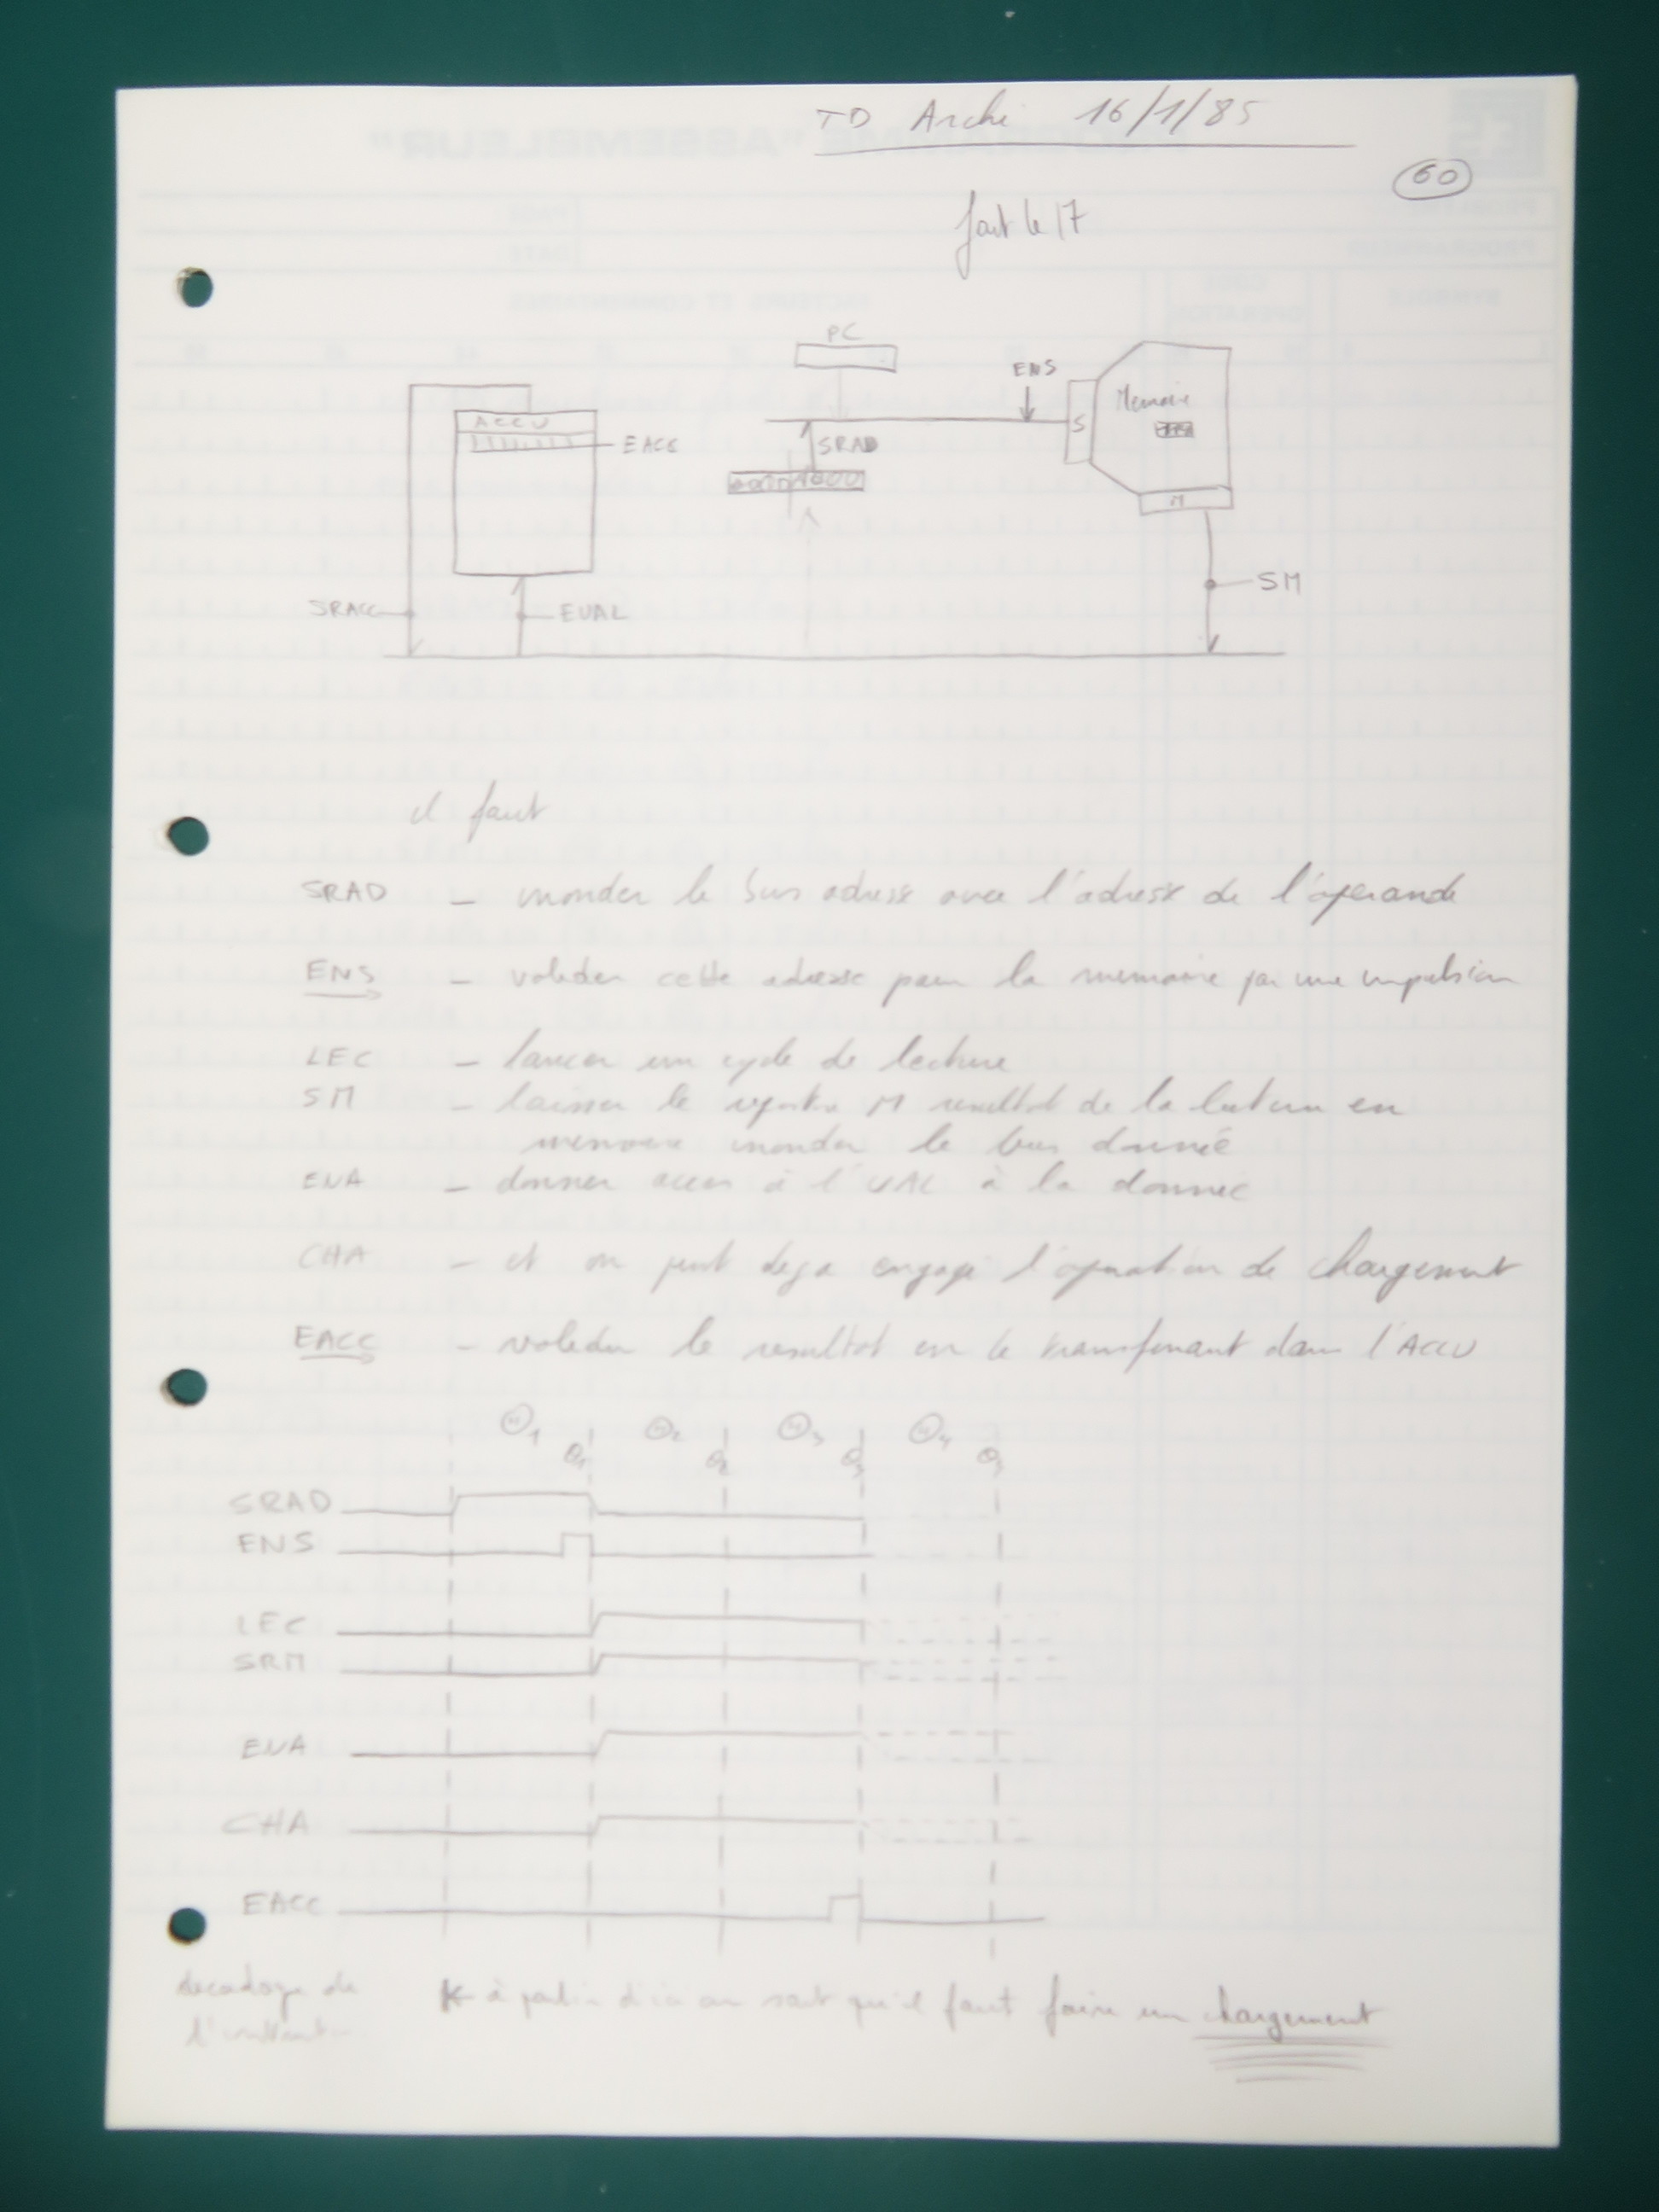 TD Archi 16/1/85
60
fait le 17
PC
ENS
Memoire
S
ACCU
EACC
SRAD
M
SM
SRACC
EUAL
il faut
SRAD - inonder le bus adresse avec l'adresse de l'operande
ENS - valider cette adresse pour la memoire par une impulsion
LEC - lancer un cycle de lecture
SM - laisser le registre M resultat de la lecture en
memoire inonder le bus donnée
ENA - donner acces à l'UAL à la donnée
CHA - et on peut deja engager l'operation de chargement
EACC - valider le resultat en le transferant dans l'ACCU
SRAD
ENS
LEC
SRM
ENA
CHA
EACC
decodage de
l'
à partir d'ici on sait qu'il faut faire un chargement
PROGRAMME "ASSEMBLEUR"